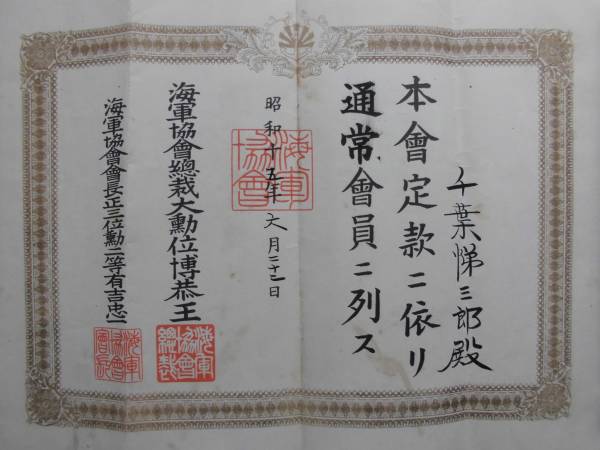 千葉悌三郎殿
本會定款ニ依リ
通常會員ニ列ス
昭和十五年六月二十二日
海軍協會
海軍協會總裁大勳位博恭王
海軍協會總裁
海軍協會會長正三位勳二等有吉忠一
海軍協會會長